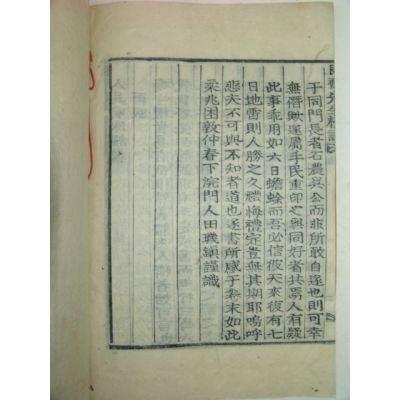 于同門長者石農吳公而非所敢自遂也則可幸
無僭鰍遂屬手民重印之與同好者共焉人有疑
此事乖用如六日蟾蜍而吾必信彼天來復有七
日地雷則人勝之久禮悔禮定豈無其期耶嗚呼
悲夫不可與不知者道也遂書所感于桼末如此
柔兆困敦仲春下浣門人田璣鎭謹識